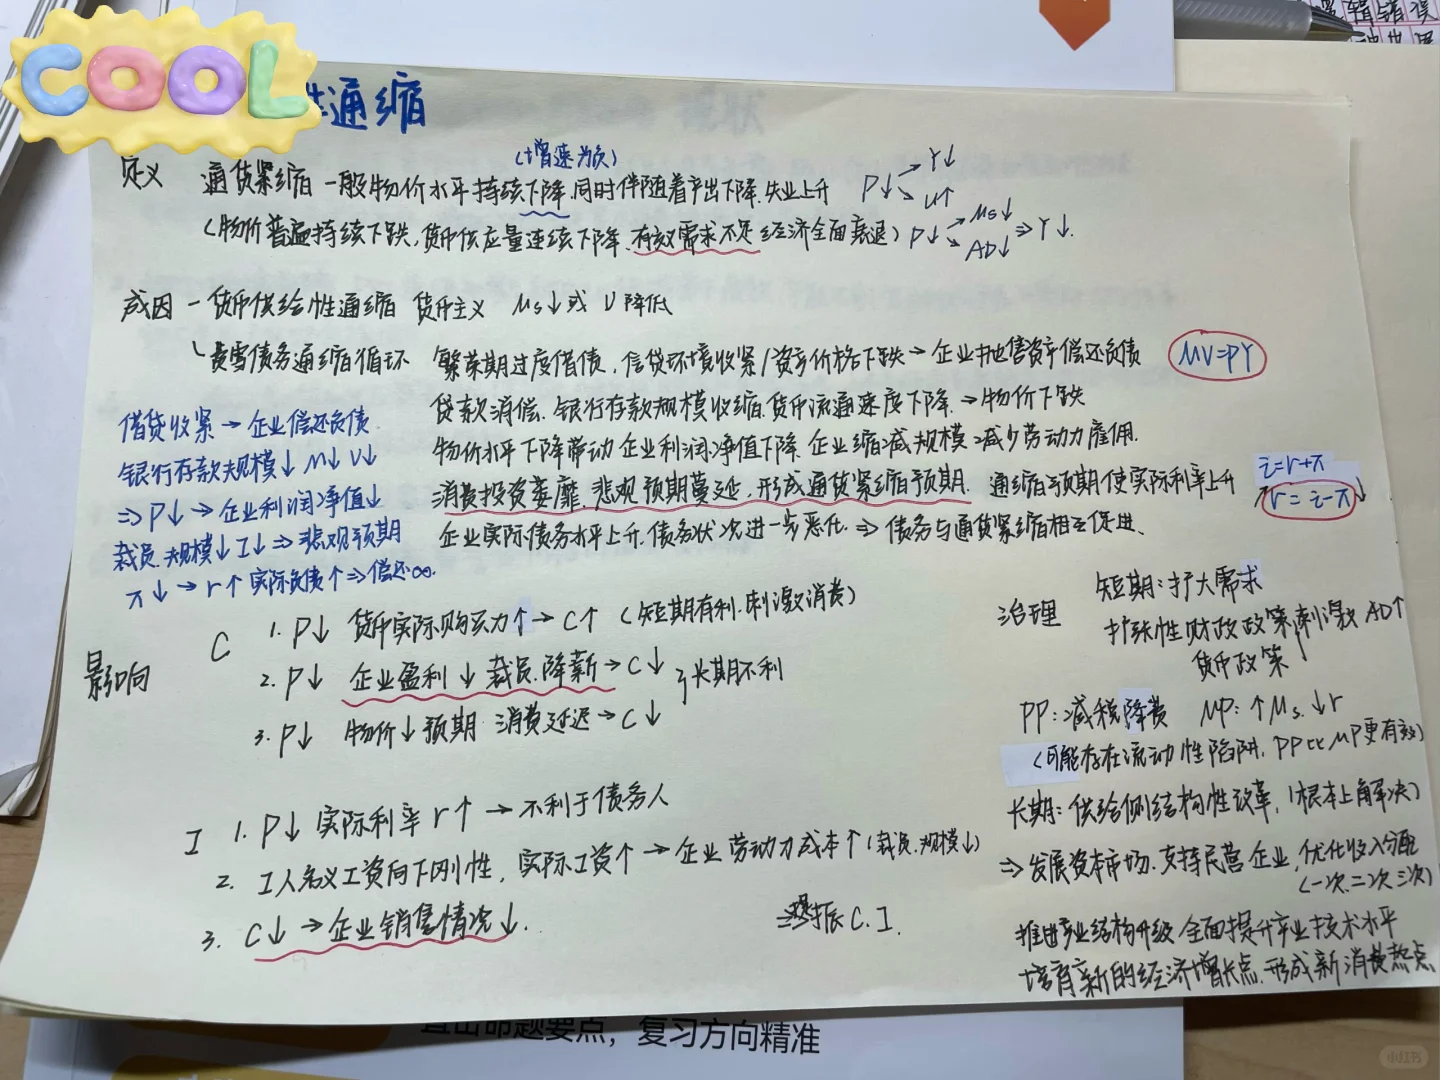 COOL
性通缩
定义 通货紧缩 一般物价水平持续下降.同时伴随着产出下降.失业上升
(增速为负)
P↓ → Y↓
↘ U↑
(物价普遍持续下跌,货币供应量连续下降.有效需求不足 经济全面衰退) P↓ → Ms↓
↘ AD↓ ⇒ Y↓.
成因 - 货币供给性通缩 货币主义 Ms↓或 V降低
费雪债务通缩循环 繁荣期过度借债,信贷环境收紧/资产价格下跌→企业抛售资产偿还负债
MV=PY
贷款消偿.银行存款规模收缩.货币流通速度下降.→物价下跌
物价水平下降带动企业利润净值下降.企业缩减规模.减少劳动力雇佣.
消费投资萎靡.悲观预期蔓延,形成通货紧缩预期. 通缩预期使实际利率上升
i=r+π
↑r=i-π↓
企业实际债务水平上升.债务状况进一步恶化.⇒债务与通货紧缩相互促进、
借贷收紧→企业偿还负债.
银行存款规模↓ M↓V↓
⇒P↓→企业利润净值↓
裁员.规模↓I↓⇒悲观预期
π↓→r↑实际负债↑⇒偿还∞.
影响
C 1. P↓ 货币实际购买力↑→C↑ (短期有利.刺激消费)
2. P↓ 企业盈利↓裁员.降薪→C↓
3. P↓ 物价↓预期 消费延迟→C↓
长期不利
I 1. P↓ 实际利率 r↑→不利于债务人
2. 工人名义工资向下刚性,实际工资↑→企业劳动力成本↑(裁员.规模↓)
3. C↓→企业销售情况↓.
⇒提振 C.I.
治理 短期:扩大需求
扩张性财政政策刺激AD↑
货币政策
PP:减税降费 MP:↑Ms.↓r
(可能存在流动性陷阱,PP比MP更有效)
长期:供给侧结构性改革,(根本上解决)
⇒发展资本市场.支持民营企业,优化收入分配
(一次.二次.三次)
推进产业结构升级 全面提升产业技术水平
培育新的经济增长点.形成新消费热点
直击命题要点,复习方向精准
逻辑错误
小红书